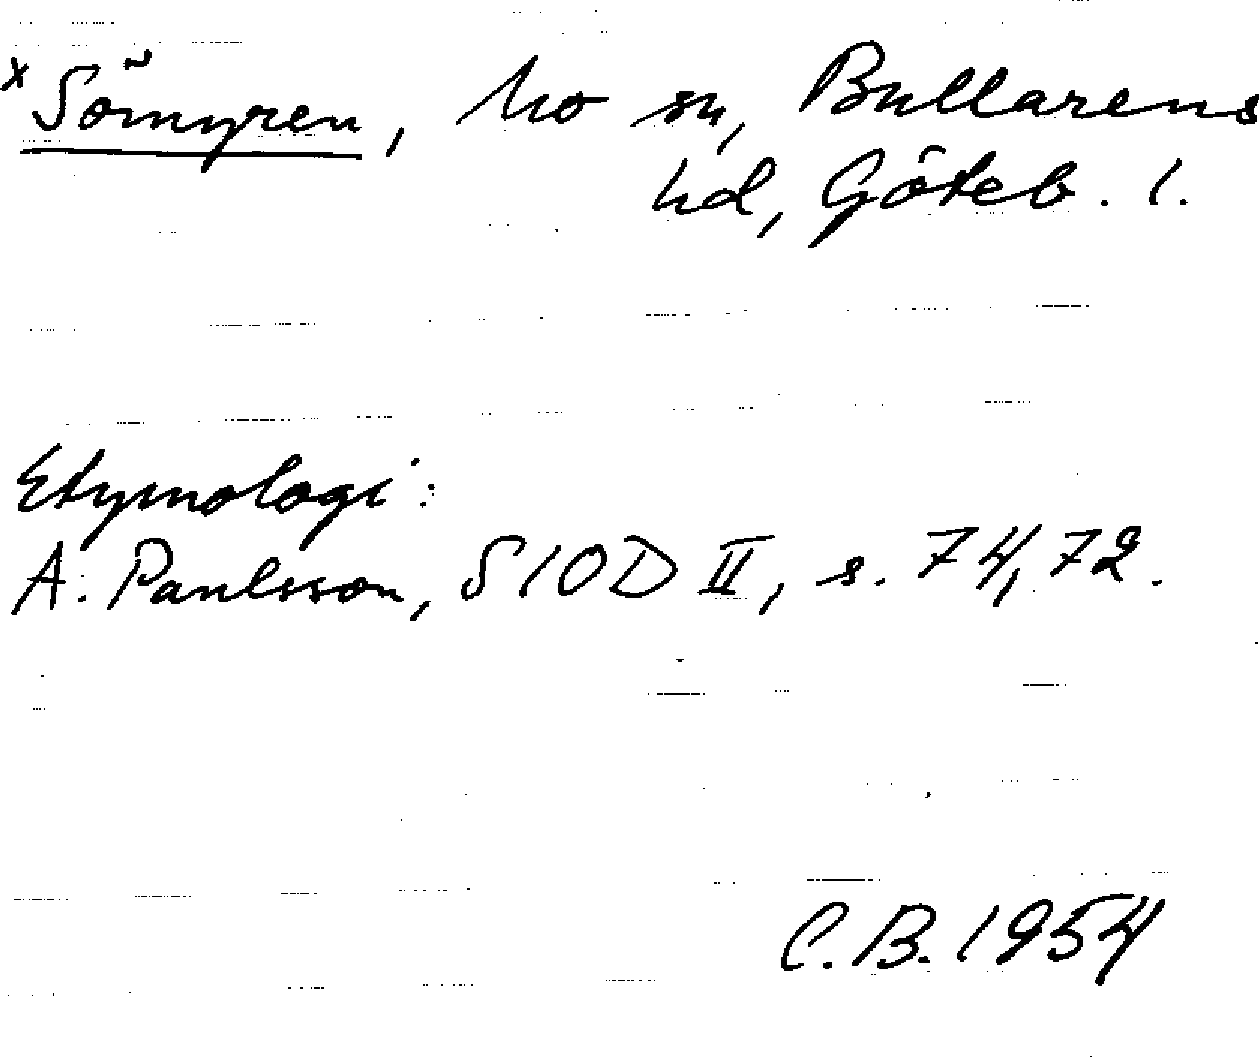 x Sömyren, Mo sn, Bullarens
hd, Göteb. l.
Etymologi:
A. Paulsson, SIOD II, s. 74, 72.
C.B. 1954